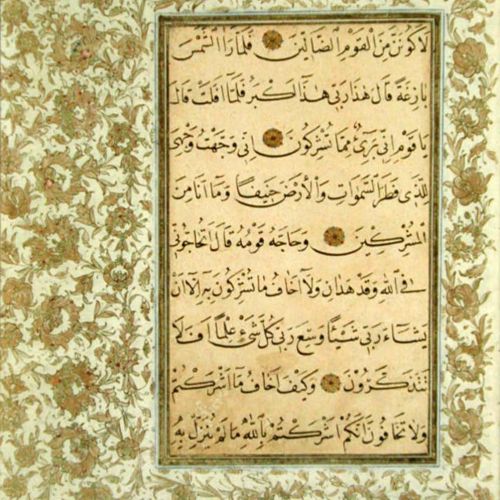 لَأَكُونَنَّ مِنَ الْقَوْمِ الضَّالِّينَ فَلَمَّا رَأَ الشَّمْسَ
بَازِغَةً قَالَ هٰذَا رَبِّي هٰذَا أَكْبَرُ فَلَمَّا أَفَلَتْ قَالَ
يَا قَوْمِ إِنِّي بَرِيءٌ مِمَّا تُشْرِكُونَ إِنِّي وَجَّهْتُ وَجْهِيَ
لِلَّذِي فَطَرَ السَّمٰوَاتِ وَالْأَرْضَ حَنِيفًا وَمَا أَنَا مِنَ
الْمُشْرِكِينَ وَحَاجَّهُ قَوْمُهُ قَالَ أَتُحَاجُّونِّي
فِي اللّٰهِ وَقَدْ هَدَانِ وَلَا أَخَافُ مَا تُشْرِكُونَ بِهِ إِلَّا أَنْ
يَشَاءَ رَبِّي شَيْئًا وَسِعَ رَبِّي كُلَّ شَيْءٍ عِلْمًا أَفَلَا
تَتَذَكَّرُونَ وَكَيْفَ أَخَافُ مَا أَشْرَكْتُمْ
وَلَا تَخَافُونَ أَنَّكُمْ أَشْرَكْتُمْ بِاللّٰهِ مَا لَمْ يُنَزِّلْ بِهِ